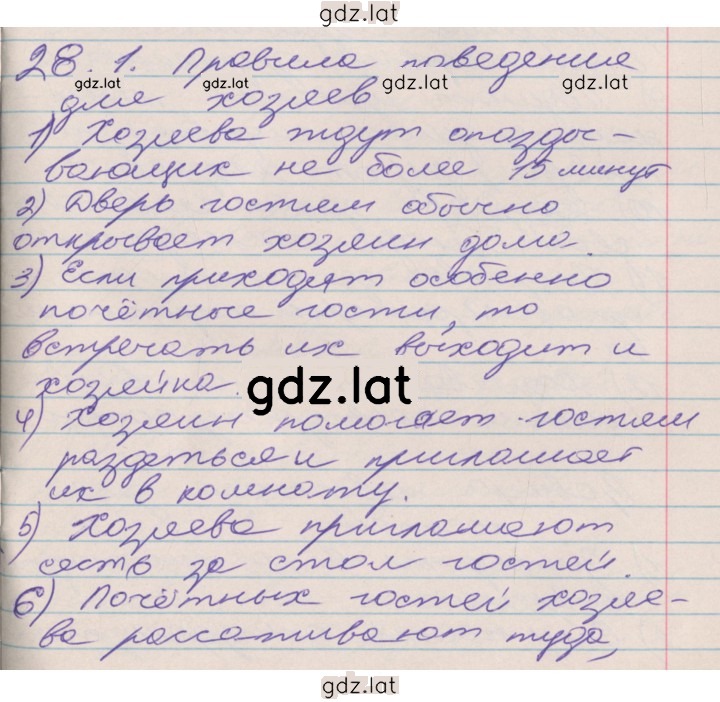 gdz.lat
28. 1. Правила поведения
gdz.lat gdz.lat gdz.lat
для хозяев
1) Хозяева ждут опозды-
вающих не более 15 минут
2) Дверь гостям обычно
открывает хозяин дома.
3) Если приходят особенно
почётные гости, то
встречать их выходит и
хозяйка.
gdz.lat
4) Хозяин помогает гостям
раздеться и приглашает
их в комнату.
5) Хозяева приглашают
сесть за стол гостей.
6) Почётных гостей хозяе-
ва рассаживают туда,
gdz.lat